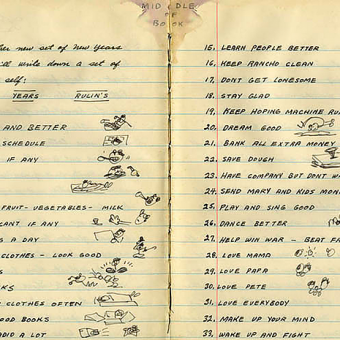 MIDDLE
OF
BOOK
her new set of New Years
ill write down a set of
self:
YEARS RULIN'S
AND BETTER
SCHEDULE
IF ANY
FRUIT - VEGETABLES - MILK
CANT IF ANY
S A DAY
CLOTHES - LOOK GOOD
S
KS
CLOTHES OFTEN
OOD BOOKS
ADIO A LOT
15. LEARN PEOPLE BETTER
16. KEEP RANCHO CLEAN
17. DONT GET LONESOME
18. STAY GLAD
19. KEEP HOPING MACHINE RU
20. DREAM GOOD
21. BANK ALL EXTRA MONEY
22. SAVE DOUGH
23. HAVE COMPANY BUT DONT W
24. SEND MARY AND KIDS MON
25. PLAY AND SING GOOD
26. DANCE BETTER
27. HELP WIN WAR - BEAT FA
28. LOVE MAMA
29. LOVE PAPA
30. LOVE PETE
31. LOVE EVERYBODY
32. MAKE UP YOUR MIND
33. WAKE UP AND FIGHT